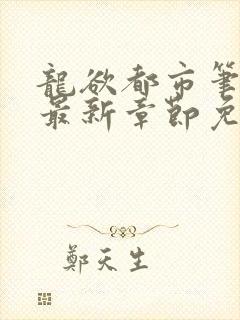 龍欲都市筆
最新章節免
鄭天生